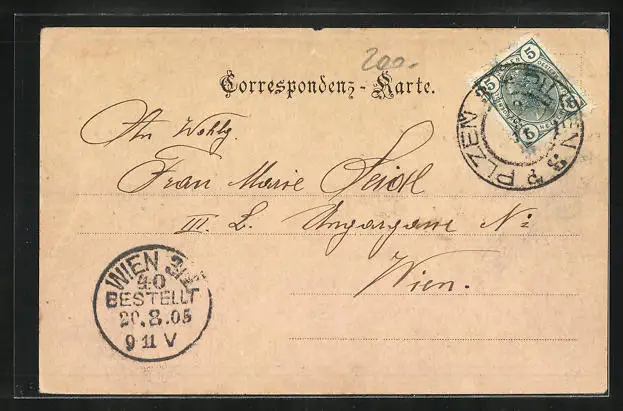 200.-
Correspondenz-Karte.
An Wohlg.
Frau Marie Seidl
III. L. Ungargasse N:
Wien.
5 5 5
PLZEŇ 3
WIEN 3
40
BESTELLT
20.8.05
9 11 V